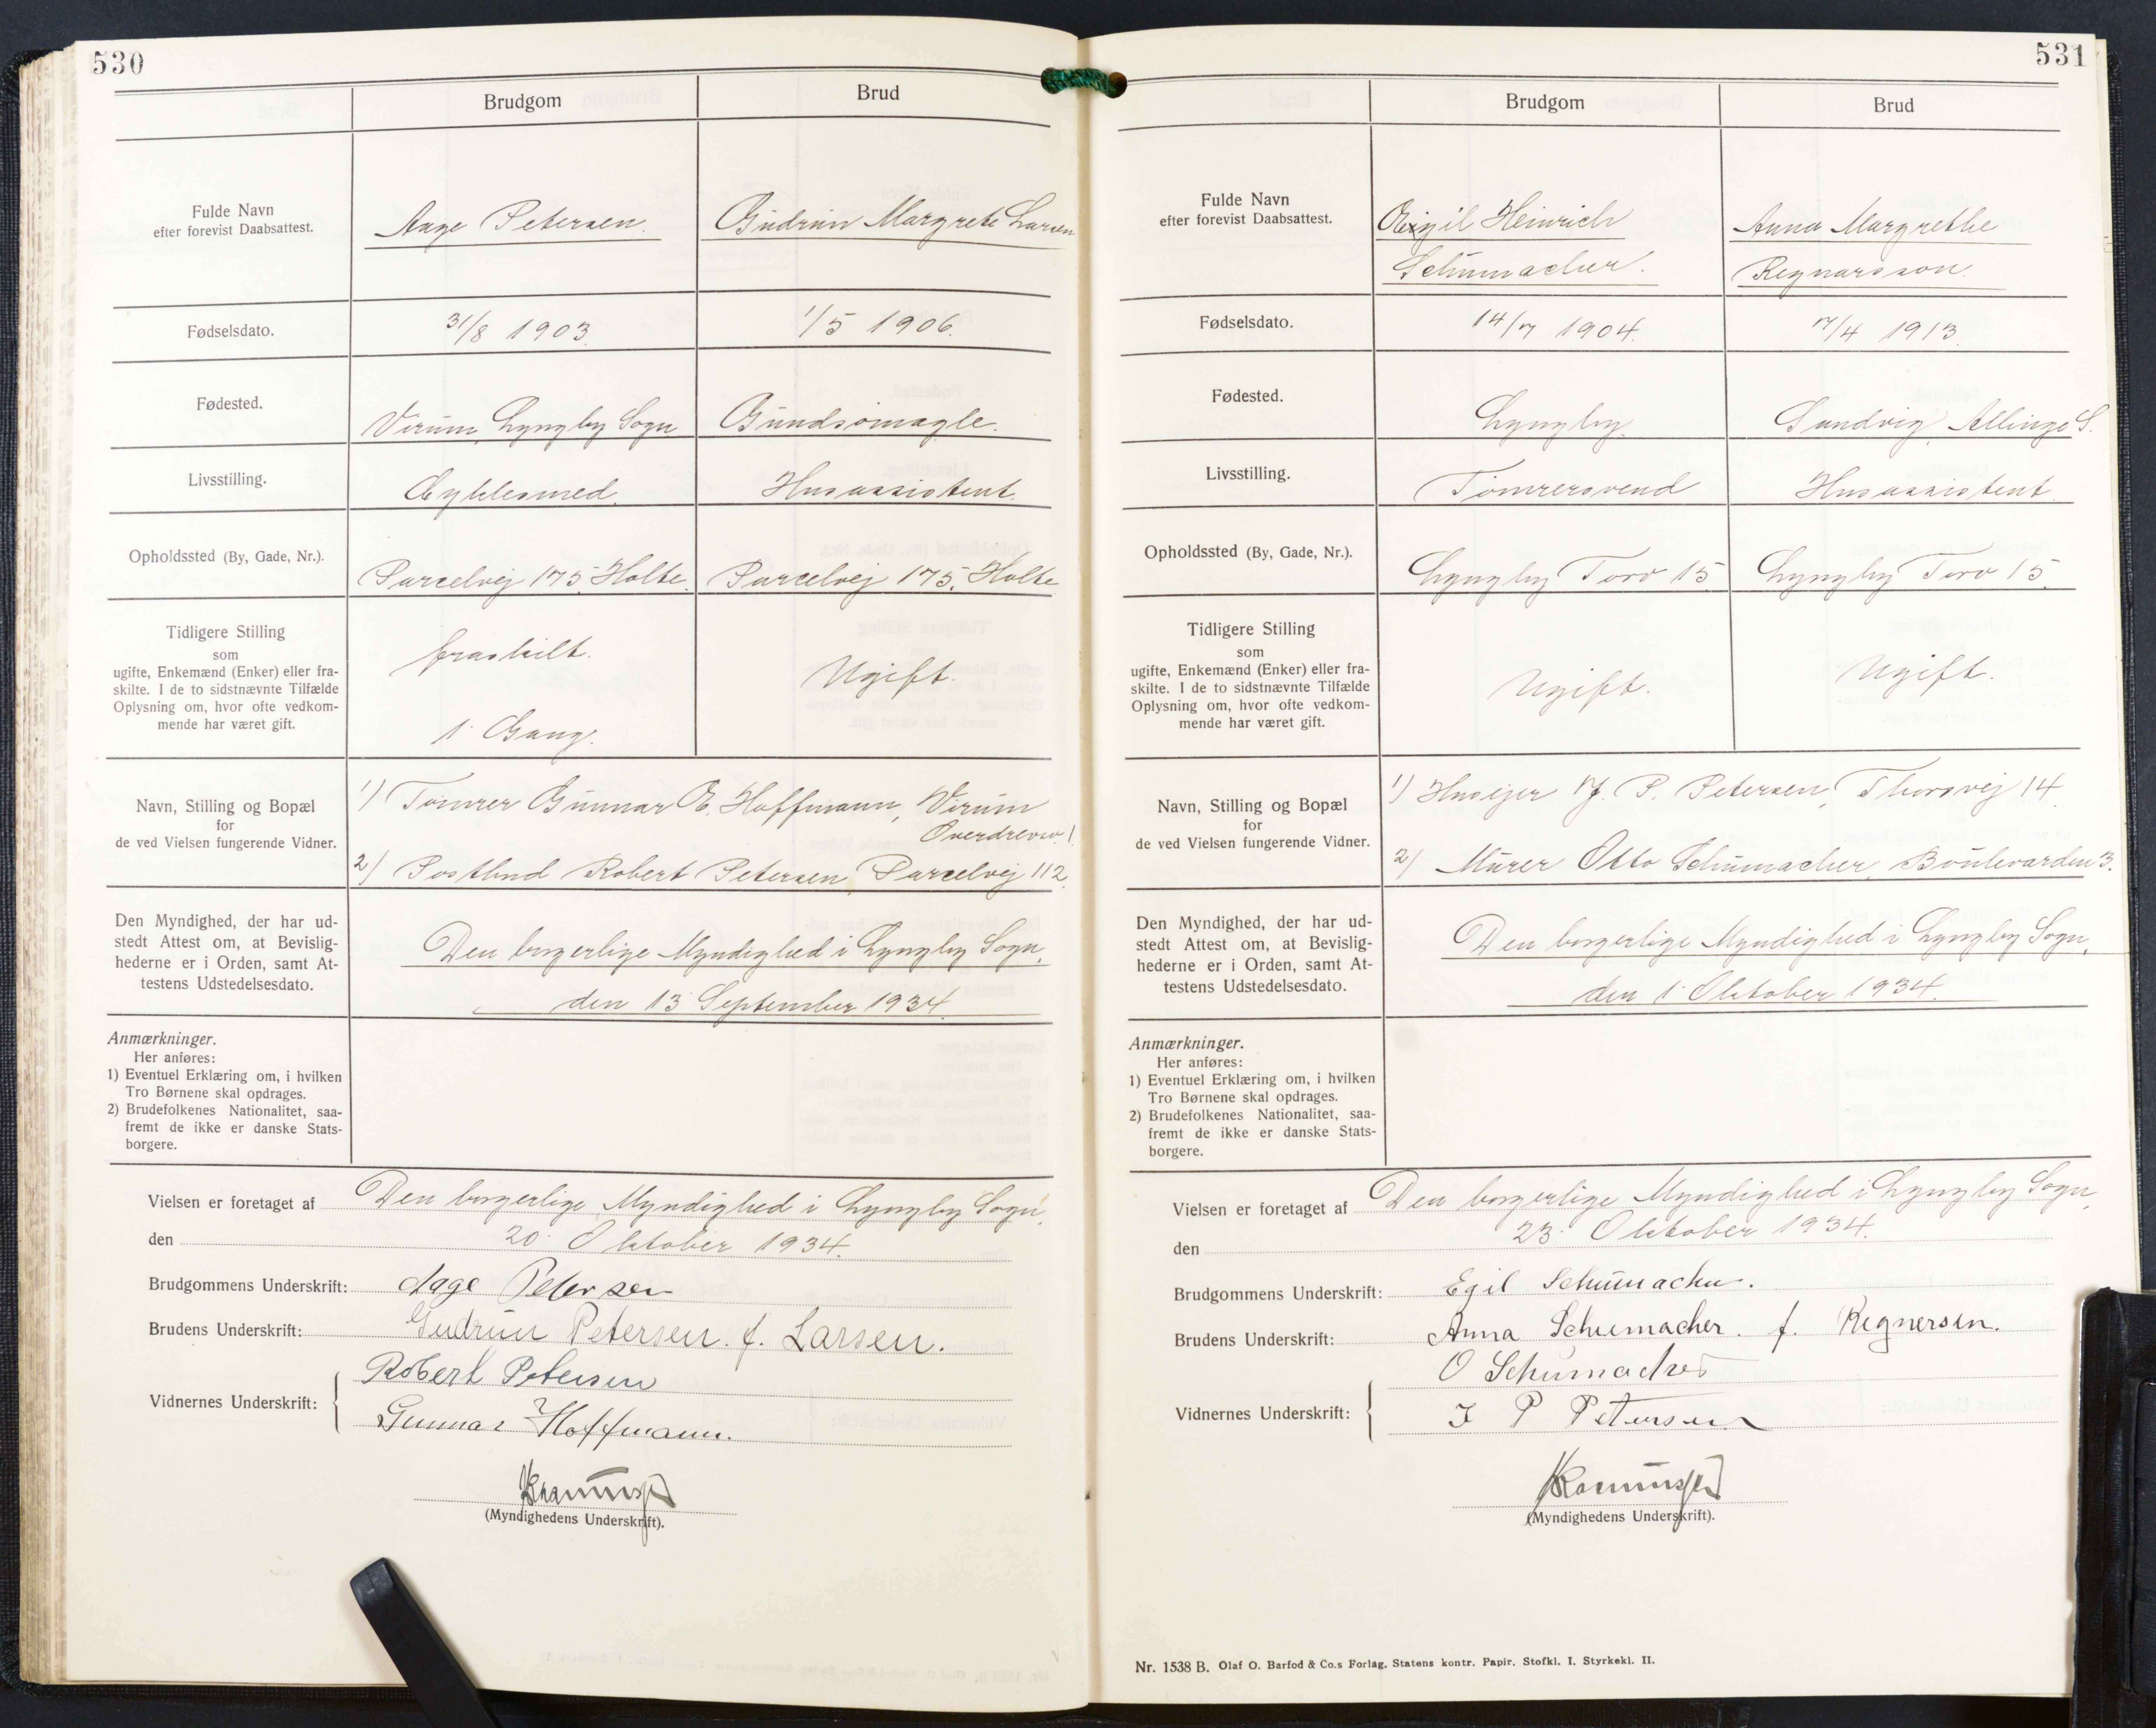 530
Brudgom
Brud
Fulde Navn
efter forevist Daabsattest.
Aage Petersen.
Gudrun Margrete Larsen
Fødselsdato.
31/8 1903.
1/5 1906.
Fødested.
Virum, Lyngby Sogn
Gundsømagle.
Livsstilling.
Cyklesmed.
Husassistent.
Opholdssted (By, Gade, Nr.).
Parcelvej 175, Holte.
Parcelvej 175, Holte
Tidligere Stilling
som
ugifte, Enkemænd (Enker) eller fra-
skilte. I de to sidstnævnte Tilfælde
Oplysning om, hvor ofte vedkom-
mende har været gift.
fraskilt.
1 Gang.
Ugift.
Navn, Stilling og Bopæl
for
de ved Vielsen fungerende Vidner.
1) Tømrer Gunnar E. Hoffmann, Virum
2) Postbud Robert Petersen, Parcelvej 112.
Den Myndighed, der har ud-
stedt Attest om, at Bevislig-
hederne er i Orden, samt At-
testens Udstedelsesdato.
Den borgerlige Myndighed i Lyngby Sogn,
den 13 September 1934.
Anmærkninger.
Her anføres:
1) Eventuel Erklæring om, i hvilken
Tro Børnene skal opdrages.
2) Brudefolkenes Nationalitet, saa-
fremt de ikke er danske Stats-
borgere.
Vielsen er foretaget af Den borgerlige Myndighed i Lyngby Sogn,
den 20. Oktober 1934.
Brudgommens Underskrift: Aage Petersen
Brudens Underskrift: Gudrun Petersen. f. Larsen.
Vidnernes Underskrift:
Robert Petersen
Gunnar Hoffmann.
(Myndighedens Underskrift).
531
Brudgom
Brud
Fulde Navn
efter forevist Daabsattest.
Egil Heinrich
Schumacher.
Anna Margrethe
Regnarsson.
Fødselsdato.
14/7 1904.
7/4 1913.
Fødested.
Lyngby.
Sandvig, Allinge S.
Livsstilling.
Tømrersvend
Husassistent
Opholdssted (By, Gade, Nr.).
Lyngby Torv 15.
Lyngby Torv 15.
Tidligere Stilling
som
ugifte, Enkemænd (Enker) eller fra-
skilte. I de to sidstnævnte Tilfælde
Oplysning om, hvor ofte vedkom-
mende har været gift.
Ugift.
Ugift.
Navn, Stilling og Bopæl
for
de ved Vielsen fungerende Vidner.
1) Husejer J. P. Petersen, Thorsvej 14.
2) Murer Otto Schumacher, Boulevarden 3.
Den Myndighed, der har ud-
stedt Attest om, at Bevislig-
hederne er i Orden, samt At-
testens Udstedelsesdato.
Den borgerlige Myndighed i Lyngby Sogn,
den 1. Oktober 1934.
Anmærkninger.
Her anføres:
1) Eventuel Erklæring om, i hvilken
Tro Børnene skal opdrages.
2) Brudefolkenes Nationalitet, saa-
fremt de ikke er danske Stats-
borgere.
Vielsen er foretaget af Den borgerlige Myndighed i Lyngby Sogn,
den 23. Oktober 1934.
Brudgommens Underskrift: Egil Schumacher.
Brudens Underskrift: Anna Schumacher. f. Regnersen.
Vidnernes Underskrift:
O Schumacher
J P Petersen
(Myndighedens Underskrift).
Nr. 1538 B. Olaf O. Barfod & Co.s Forlag. Statens kontr. Papir. Stofkl. I. Styrkekl. II.